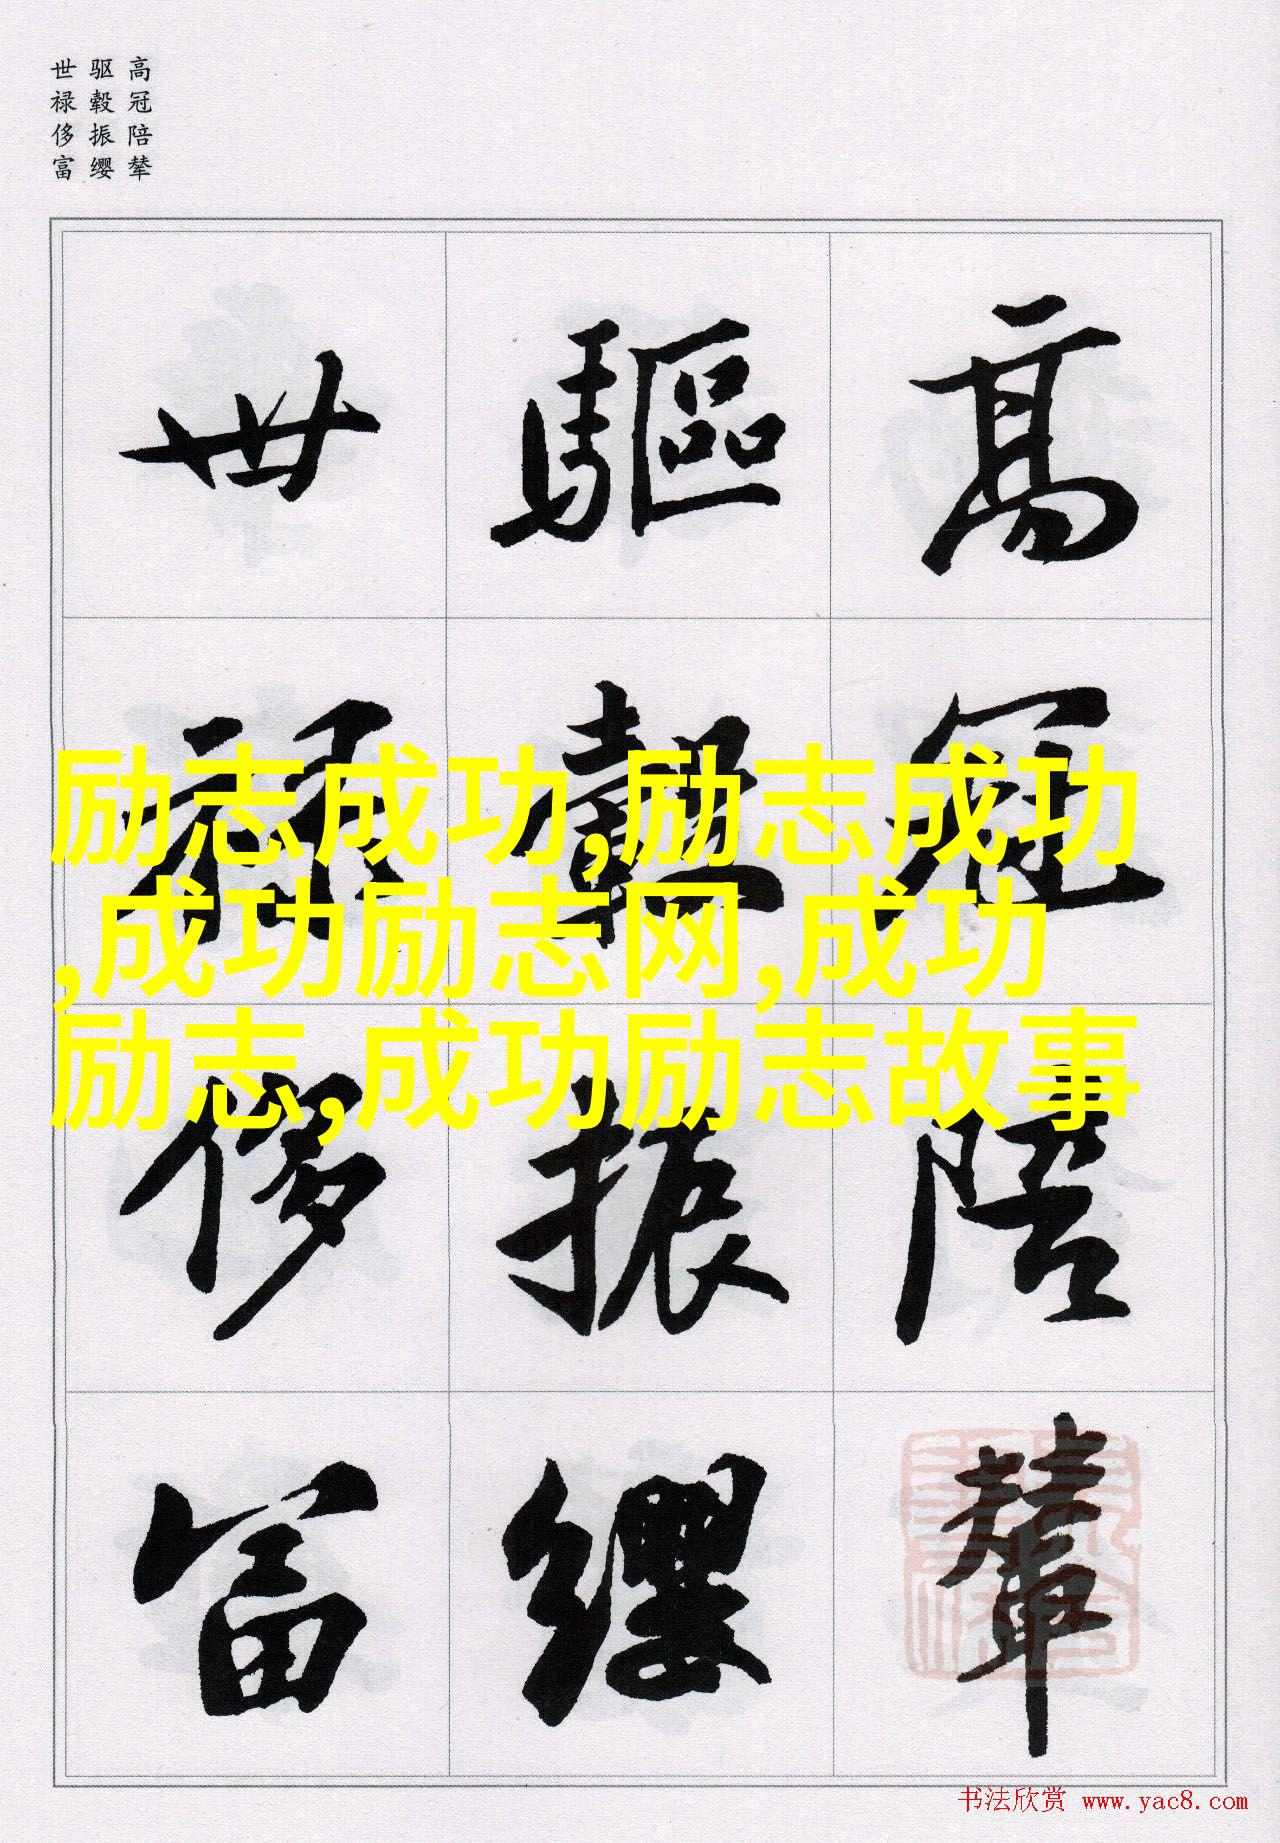 高冠陪辇
驱毂振缨
世禄侈富
高冠陪輦
驅轂振纓
世禄侈富
励志成功,励志成功
,成功励志网,成功
励志,成功励志故事
书法欣赏 www.yac8.com